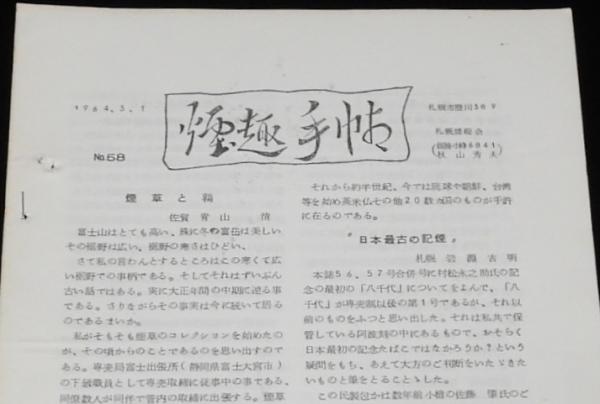 1964.5.1
煙趣手帖
No.58
札幌市豊川369
札幌煙報会
秋山秀夫
煙草と猫
佐賀 青山 惰
富士山はとても高い、殊に冬の富岳は美しい
その裾野は広い、裾野の寒さはひどい、
さて私の言わんとするところはこの寒くて広
い裾野での事柄である。そしてそれはずいぶん
古い話ではある。実に大正年間の中期に遡る事
である。さりながらその事実は今に続いて居る
のであるまいか。
私がそもそも煙草のコレクションを始めたの
が、その頃からのことであるのを思い出すので
ある。専売局富士出張所(静岡県富士大宮市)
の下級職員として専売取締に従事中の事である、
同僚数人が同伴で管内の取締に出張する。煙草
それから約半世紀、今では琉球や朝鮮、台湾
等を始め英米仏その他20数カ国のものが手許
に在るのである。
“日本最古の記煙”
札幌 岩淵吉明
本誌56、57号合併号に村松永之助氏の記
念の最初の「八千代」についてをよんで、「八
千代」が専売制以後の第1号であるが、それ以
前のものをふっと思い出した。それは私共で保
管している阿波刻の中にあるもので、おそらく
日本最初の記念たばこではなかろうか?という
疑問をもち、あえて大方のご判断をいたゞきた
いものと筆をとることゝした。
この民製包かは数年前小樽の佐藤 肇氏のご